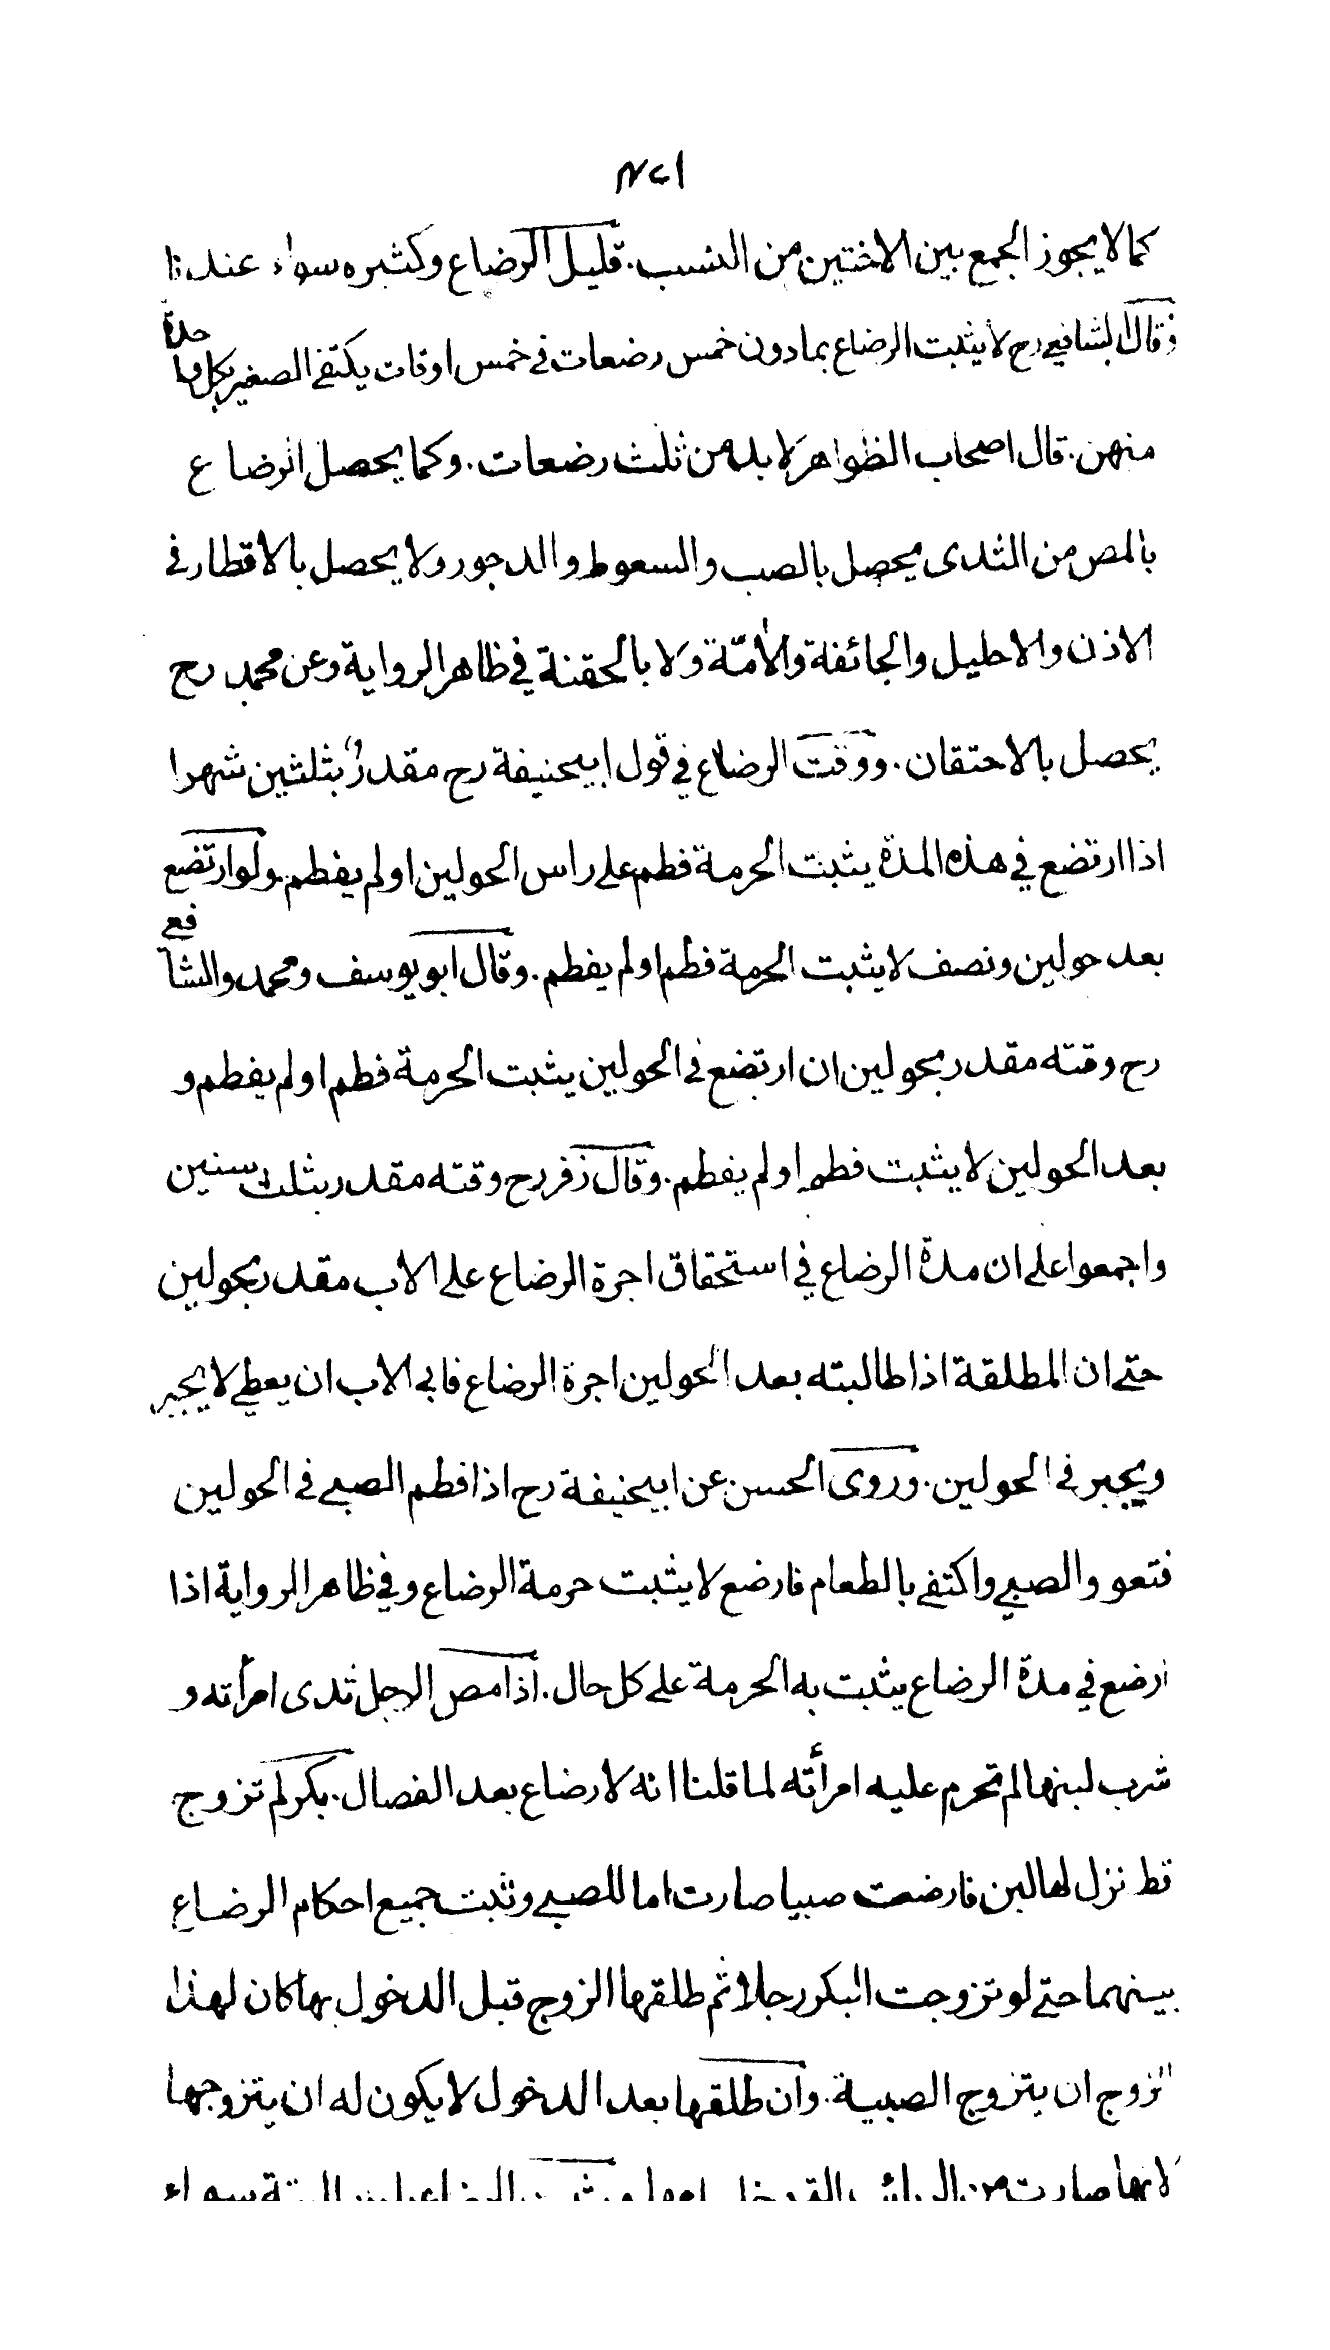 كما لا يجوز الجمع بين الاختين من النسب. قليل الرضاع وكثيره سواء عندنا
وقال الشافعي رح لا يثبت الرضاع بما دون خمس رضعات في خمس اوقات يكتفي الصغير بكل واحدة
منهن. قال اصحاب الظواهر لا بد من ثلث رضعات. وكما يحصل الرضاع
بالمص من الثدى يحصل بالصب والسعوط والدجور ولا يحصل بالاقطار في
الاذن والاحليل والجائفة والأمّة ولا بالحقنة في ظاهر الرواية وعن محمد رح
يحصل بالاحتقان. ووقت الرضاع في قول ابيحنيفة رح مقدر بثلثين شهرا
اذا ارتضع في هذه المدة يثبت الحرمة فطم على راس الحولين او لم يفطم. ولو ارتضع
بعد حولين ونصف لا يثبت الحرمة فطم او لم يفطم. وقال ابو يوسف ومحمد والشافع
رح وقته مقدر بحولين ان ارتضع في الحولين يثبت الحرمة فطم او لم يفطم و
بعد الحولين لا يثبت فطم او لم يفطم. وقال زفر رح وقته مقدر بثلث سنين
واجمعوا على ان مدة الرضاع في استحقاق اجرة الرضاع على الاب مقدر بحولين
حتى ان المطلقة اذا طالبته بعد الحولين اجرة الرضاع فابى الاب ان يعطي لا يجبر
ويجبر في الحولين. وروى الحسن عن ابيحنيفة رح اذا فطم الصبي في الحولين
فتعود الصبي واكتفى بالطعام فارضع لا يثبت حرمة الرضاع وفي ظاهر الرواية اذا
ارضع في مدة الرضاع يثبت به الحرمة على كل حال. اذا مص الرجل ثدى امرأته و
شرب لبنها لم تحرم عليه امرأته لما قلنا انه لا رضاع بعد الفصال. بكر لم تزوج
قط نزل لها لبن فارضعت صبيا صارت اما للصبي وثبت جميع احكام الرضاع
بينهما حتى لو تزوجت البكر رجلا ثم طلقها الزوج قبل الدخول بها كان لهذا
الزوج ان يتزوج الصبية. وان طلقها بعد الدخول لا يكون له ان يتزوجها
لانها صارت من الربائب